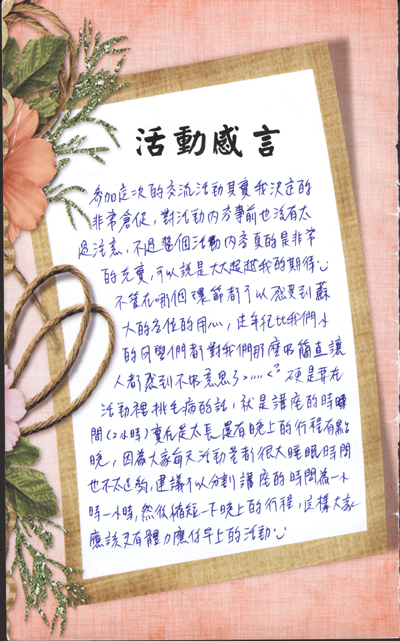 活動感言
參加這次的交流活動其實我決定的
非常倉促,對活動內容事前也沒有太
過注意,不過整個活動內容真的是非常
的充實,可以說是大大超越我的期待
不管在哪個環節都可以感受到蘇
大的各位的用心,連年紀比我們小
的同學們都對我們那麼好簡直讓
人都感到不好意思了>.....<,硬是要在
活動裡挑毛病的話,就是講座的時
間(2小時)實在是太長,還有晚上的行程有點
晚,因為大家每天活動量都很大睡眠時間
也不太夠,建議可以分割講座的時間為一小
時一小時,然後縮短一下晚上的行程,這樣大家
應該更有體力應付早上的活動